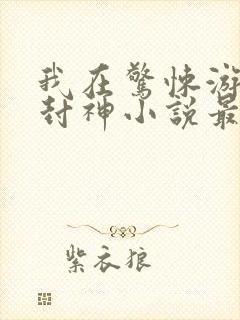 我在驚悚游
封神小説最
紫衣狼